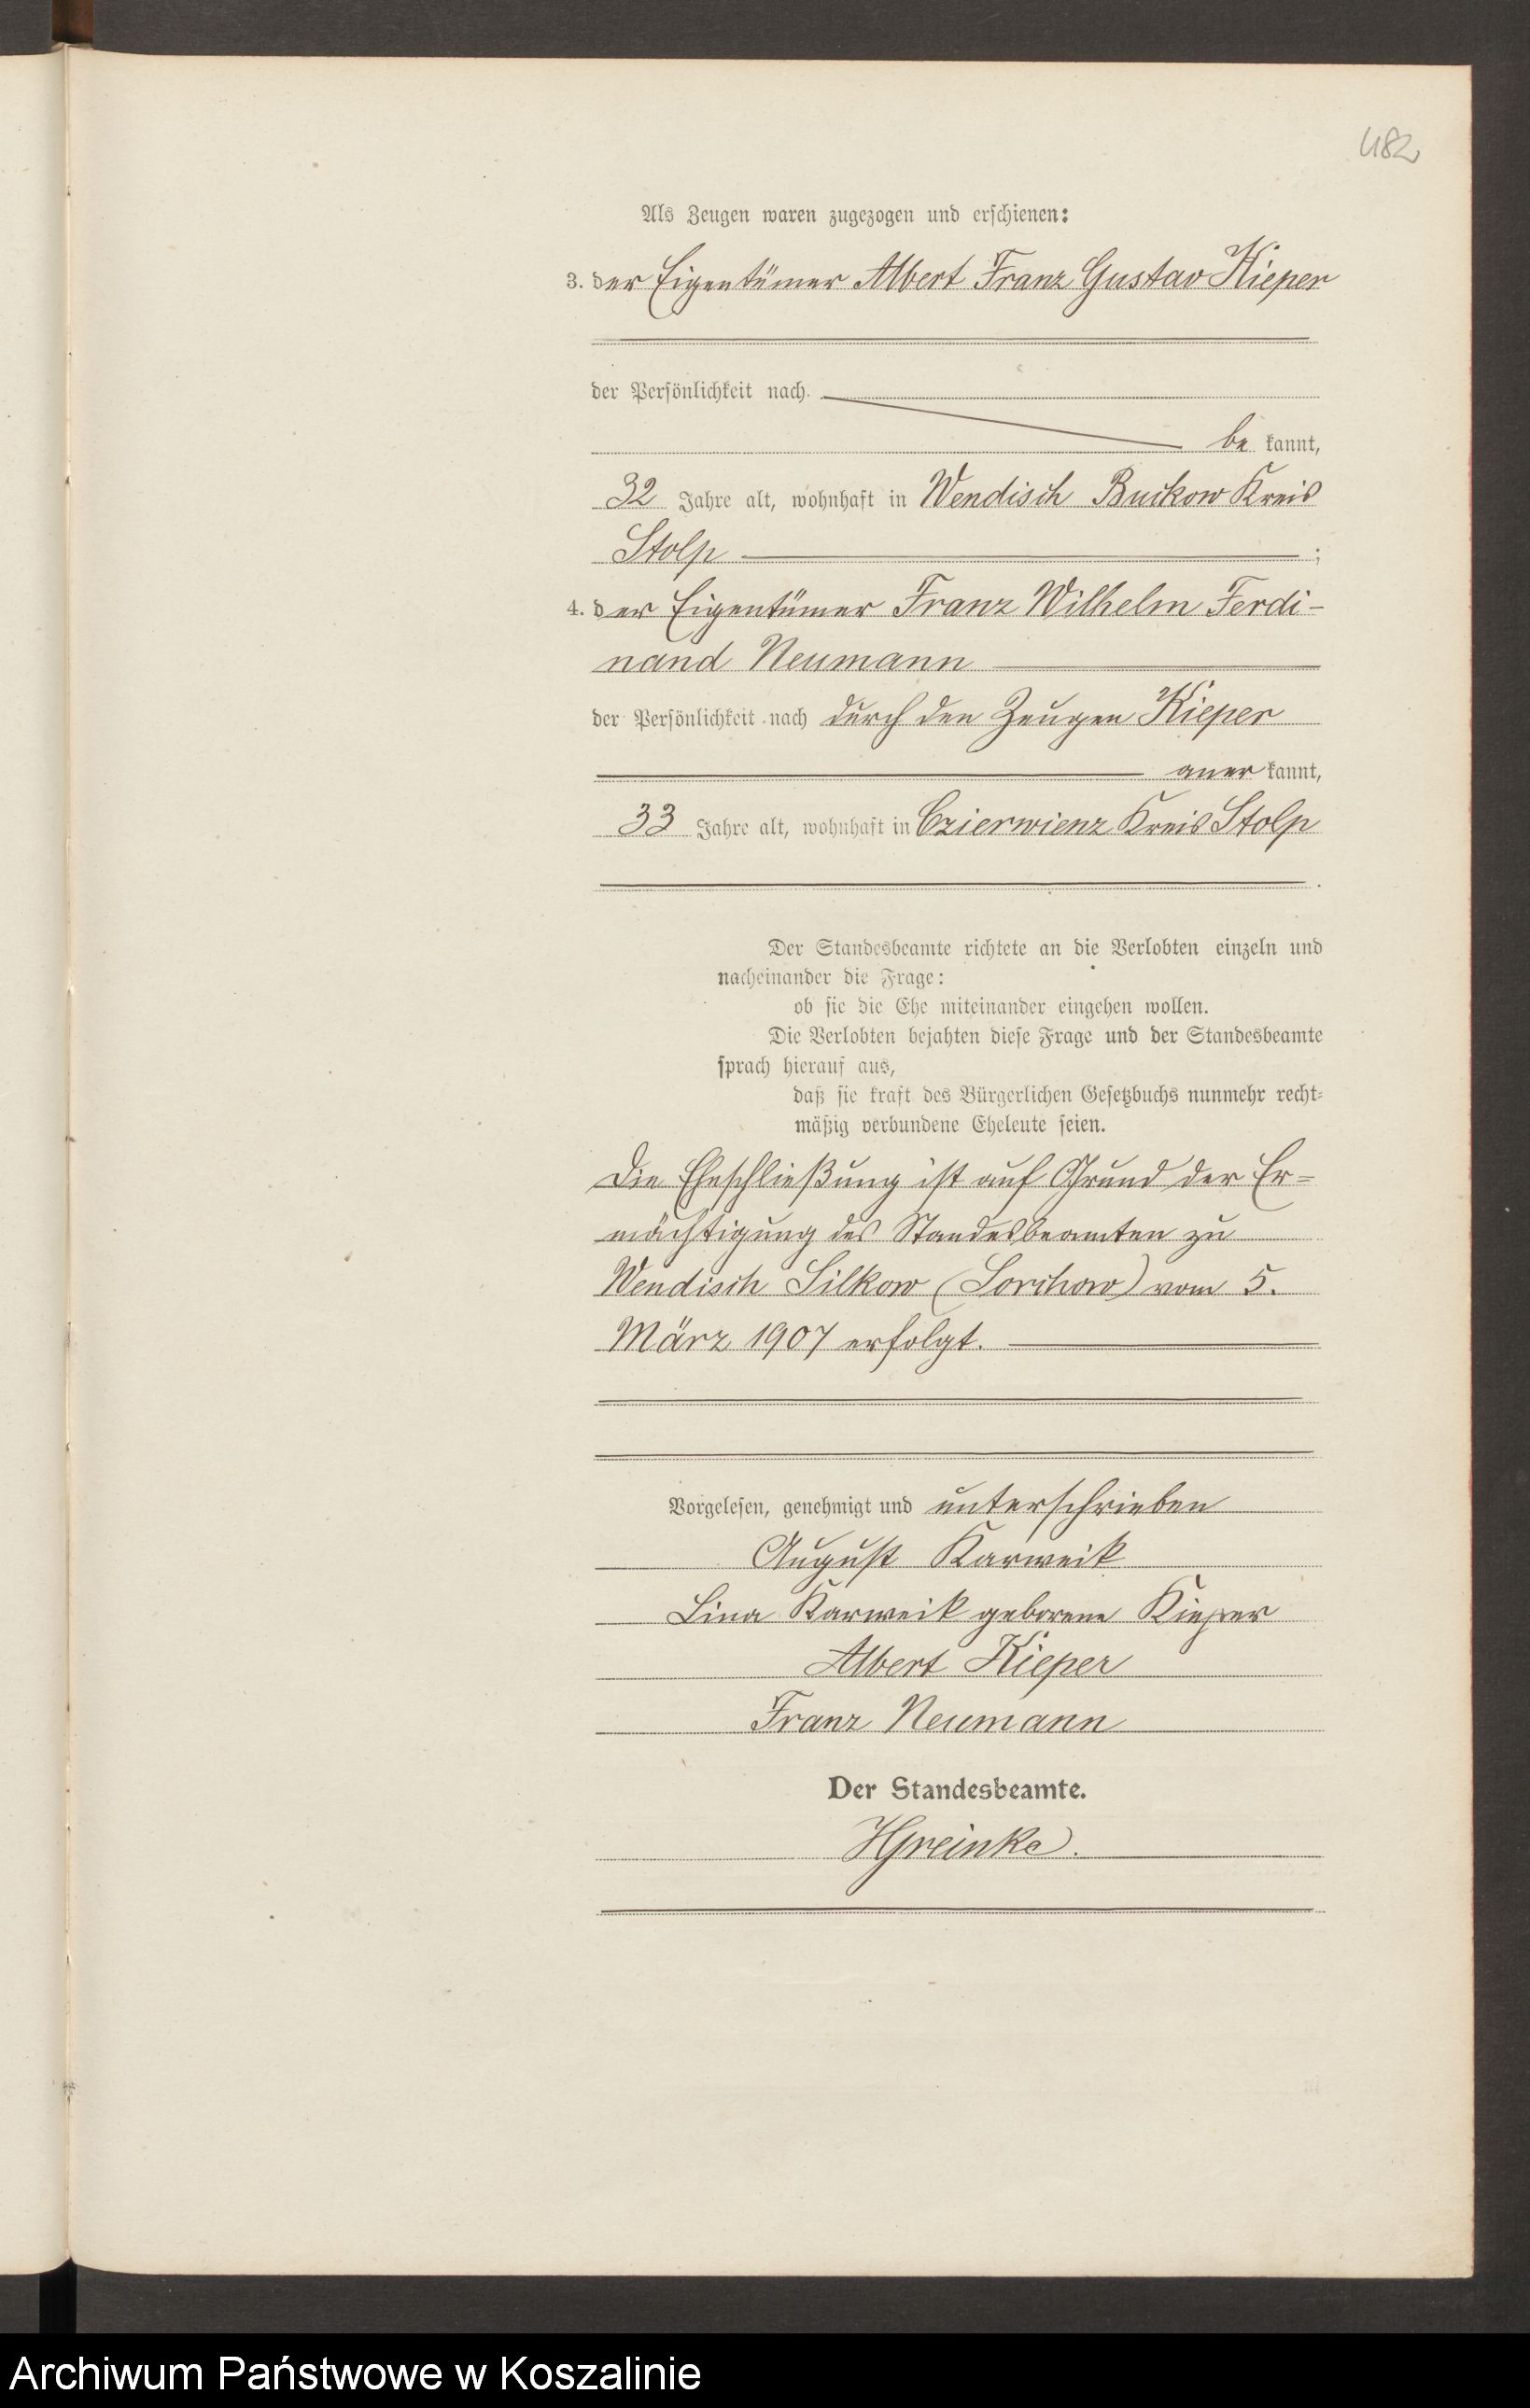 482
Als Zeugen waren zugezogen und erschienen:
3. der Eigentümer Albert Franz Gustav Kieper
der Persönlichkeit nach
be kannt,
32 Jahre alt, wohnhaft in Wendisch Buckow Kreis
Stolp ;
4. der Eigentümer Franz Wilhelm Ferdi-
nand Neumann
der Persönlichkeit nach durch den Zeugen Kieper
aner kannt,
33 Jahre alt, wohnhaft in Czierwienz Kreis Stolp
.
Der Standesbeamte richtete an die Verlobten einzeln und
nacheinander die Frage:
ob sie die Ehe miteinander eingehen wollen.
Die Verlobten bejahten diese Frage und der Standesbeamte
sprach hierauf aus,
daß sie kraft des Bürgerlichen Gesetzbuchs nunmehr recht-
mäßig verbundene Eheleute seien.
Die Eheschließung ist auf Grund der Er=
mächtigung des Standesbeamten zu
Wendisch Silkow (Lorchow) vom 5.
März 1907 erfolgt.
Vorgelesen, genehmigt und unterschrieben
August Karweik
Lina Karweik geborene Kieper
Albert Kieper
Franz Neumann
Der Standesbeamte.
HGreinke.
Archiwum Państwowe w Koszalinie